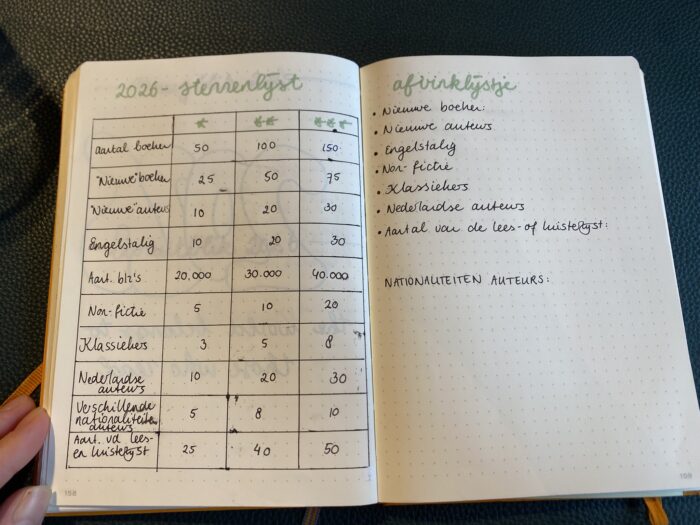 2026 - sterrenlijst
★ ★★ ★★★
Aantal boeken 50 100 150
"Nieuwe" boeken 25 50 75
"Nieuwe" auteurs 10 20 30
Engelstalig 10 20 30
Aant. blz's 20.000 30.000 40.000
Non-fictie 5 10 20
Klassiekers 3 5 8
Nederlandse
auteurs 10 20 30
Verschillende
nationaliteiten
auteurs 5 8 10
Aant. vd lees-
en luisterlijst 25 40 50
158
afvinklijstje
• Nieuwe boeken:
• Nieuwe auteurs
• Engelstalig
• Non-fictie
• Klassiekers
• Nederlandse auteurs
• Aantal van de lees- of luisterlijst:
NATIONALITEITEN AUTEURS:
159